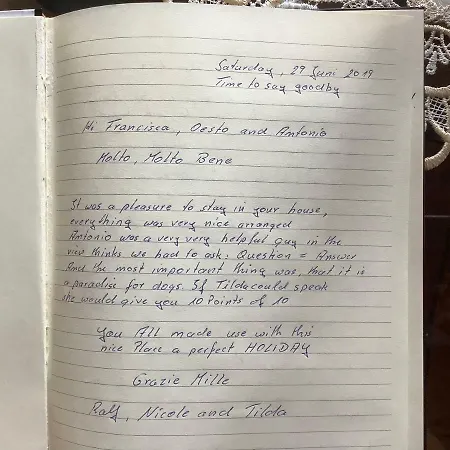 Saturday, 29 Juni 2019
Time to say goodby
Hi Francisca, Oesto and Antonio
Molto, Molto Bene
It was a pleasure to stay in your house,
everything was very nice arranged
Antonio was a very very helpful guy in the
view thinks we had to ask. Question = Answer
And the most important thing was, that it is
a paradise for dogs. If Tilda could speak
she would give you 10 Points of 10
You All made use with this
nice Place a perfect HOLIDAY
Grazie Mille
Ralf, Nicole and Tilda